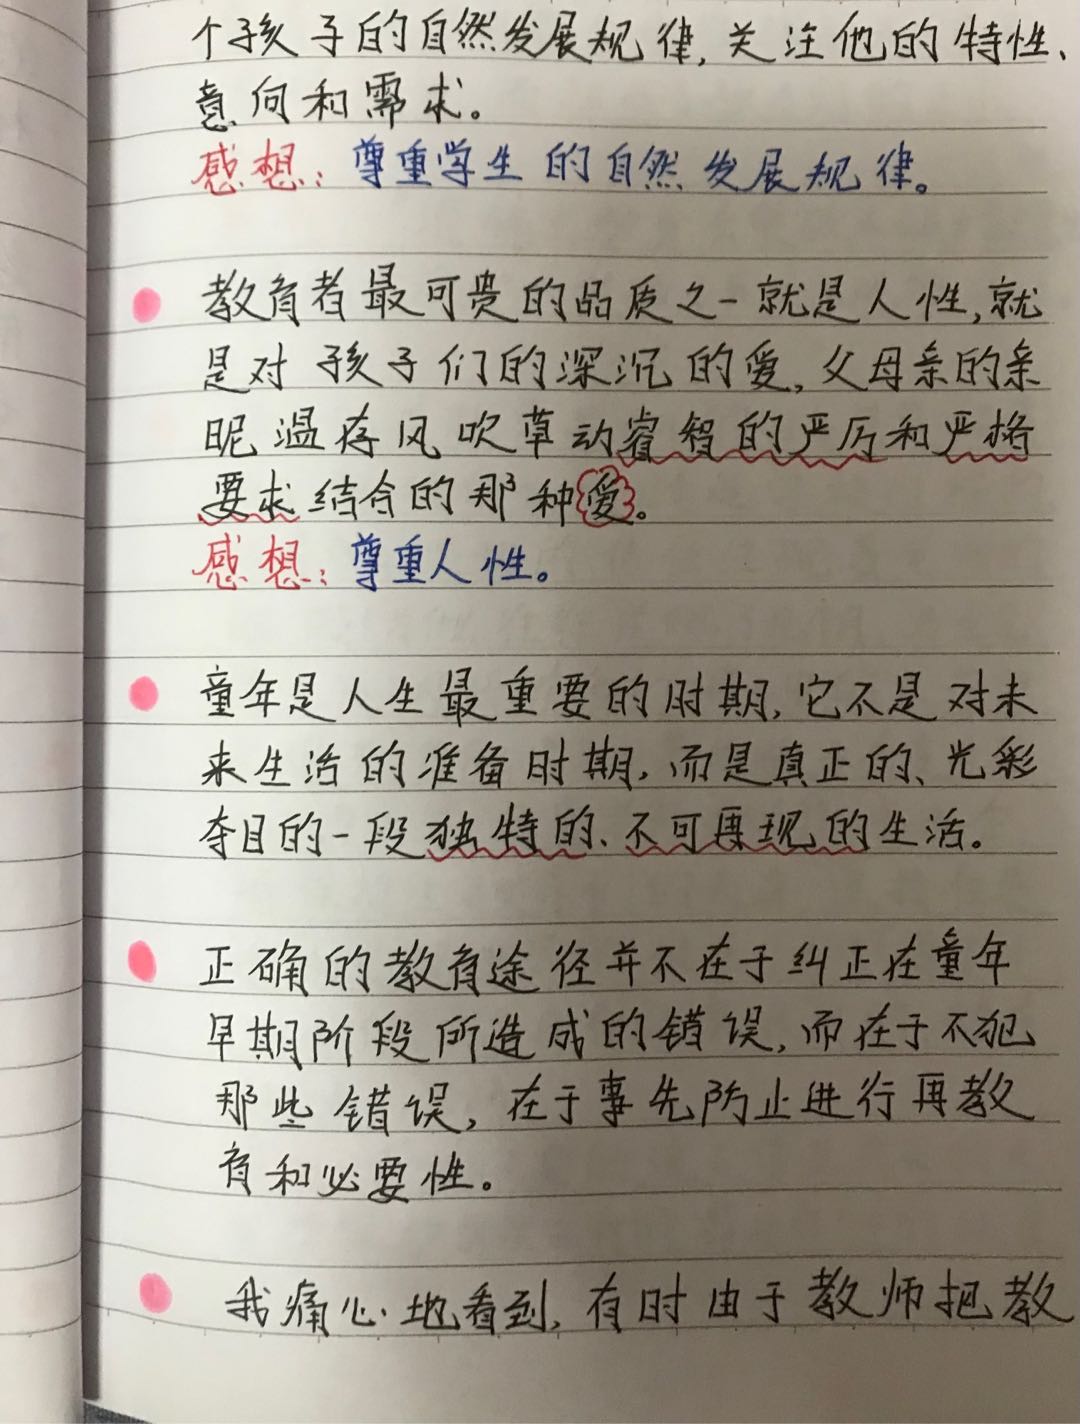 个孩子的自然发展规律,关注他的特性、
意向和需求。
感想:尊重学生的自然发展规律。
教育者最可贵的品质之一就是人性,就
是对孩子们的深沉的爱,父母亲的亲
昵温存风吹草动睿智的严厉和严格
要求结合的那种爱。
感想:尊重人性。
童年是人生最重要的时期,它不是对未
来生活的准备时期,而是真正的、光彩
夺目的一段独特的、不可再现的生活。
正确的教育途径并不在于纠正在童年
早期阶段所造成的错误,而在于不犯
那些错误,在于事先防止进行再教
育和必要性。
我痛心地看到,有时由于教师把教